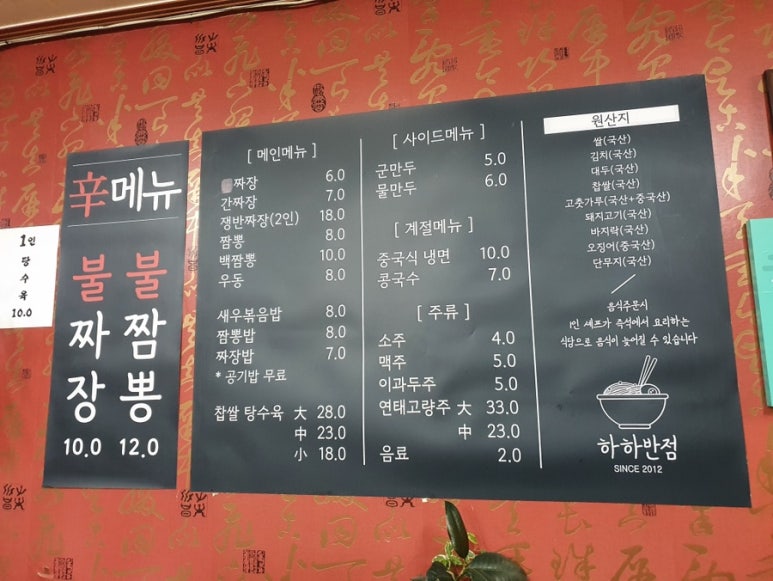 1인
당
수
육
10.0
辛메뉴
불짜장
10.0
불짬뽕
12.0
[ 메인메뉴 ]
짜장 6.0
간짜장 7.0
쟁반짜장(2인) 18.0
짬뽕 8.0
백짬뽕 10.0
우동 8.0
새우볶음밥 8.0
짬뽕밥 8.0
짜장밥 7.0
* 공기밥 무료
찹쌀 탕수육 大 28.0
中 23.0
小 18.0
[ 사이드메뉴 ]
군만두 5.0
물만두 6.0
[ 계절메뉴 ]
중국식 냉면 10.0
콩국수 7.0
[ 주류 ]
소주 4.0
맥주 5.0
이과두주 5.0
연태고량주 大 33.0
中 23.0
음료 2.0
원산지
쌀(국산)
김치(국산)
대두(국산)
찹쌀(국산)
고춧가루(국산+중국산)
돼지고기(국산)
바지락(국산)
오징어(중국산)
단무지(국산)
음식주문시
1인 셰프가 즉석에서 요리하는
식당으로 음식이 늦어질 수 있습니다
하하반점
SINCE 2012